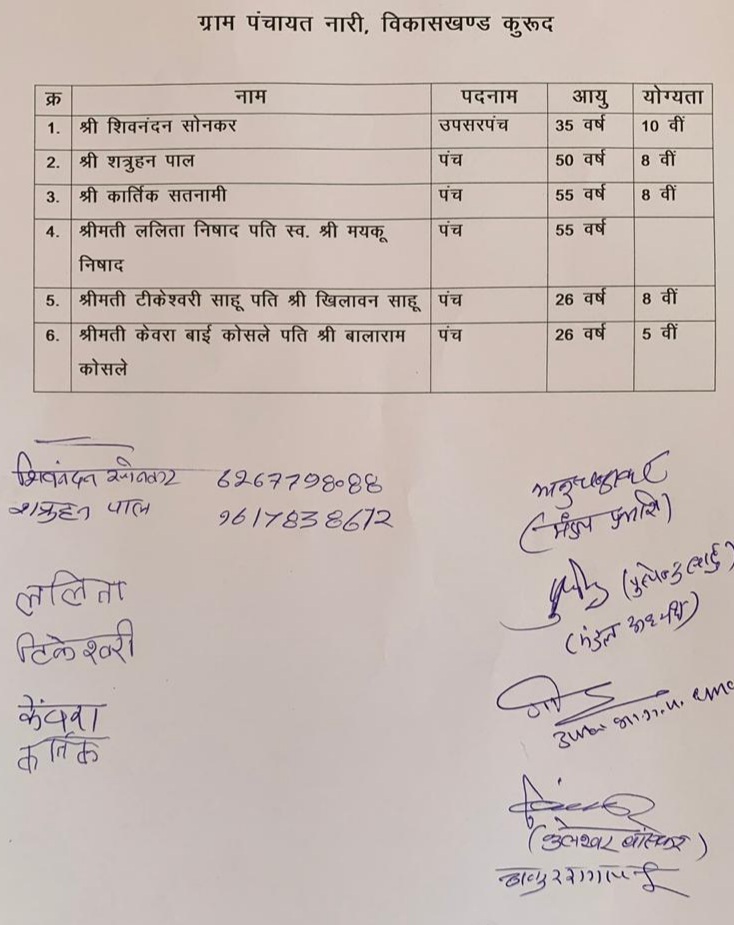 ग्राम पंचायत नारी, विकासखण्ड कुरूद
क्र नाम पदनाम आयु योग्यता
1. श्री शिवनंदन सोनकर उपसरपंच 35 वर्ष 10 वीं
2. श्री शत्रुहन पाल पंच 50 वर्ष 8 वीं
3. श्री कार्तिक सतनामी पंच 55 वर्ष 8 वीं
4. श्रीमती ललिता निषाद पति स्व. श्री मयकू पंच 55 वर्ष
निषाद
5. श्रीमती टीकेश्वरी साहू पति श्री खिलावन साहू पंच 26 वर्ष 8 वीं
6. श्रीमती केवरा बाई कोसले पति श्री बालाराम पंच 26 वर्ष 5 वीं
कोसले
शिवनंदन सोनकर 6267798088
शत्रुहन पाल 9617838672
ललिता
टिकेश्वरी
केंवरा
कर्तिक
(मंडल